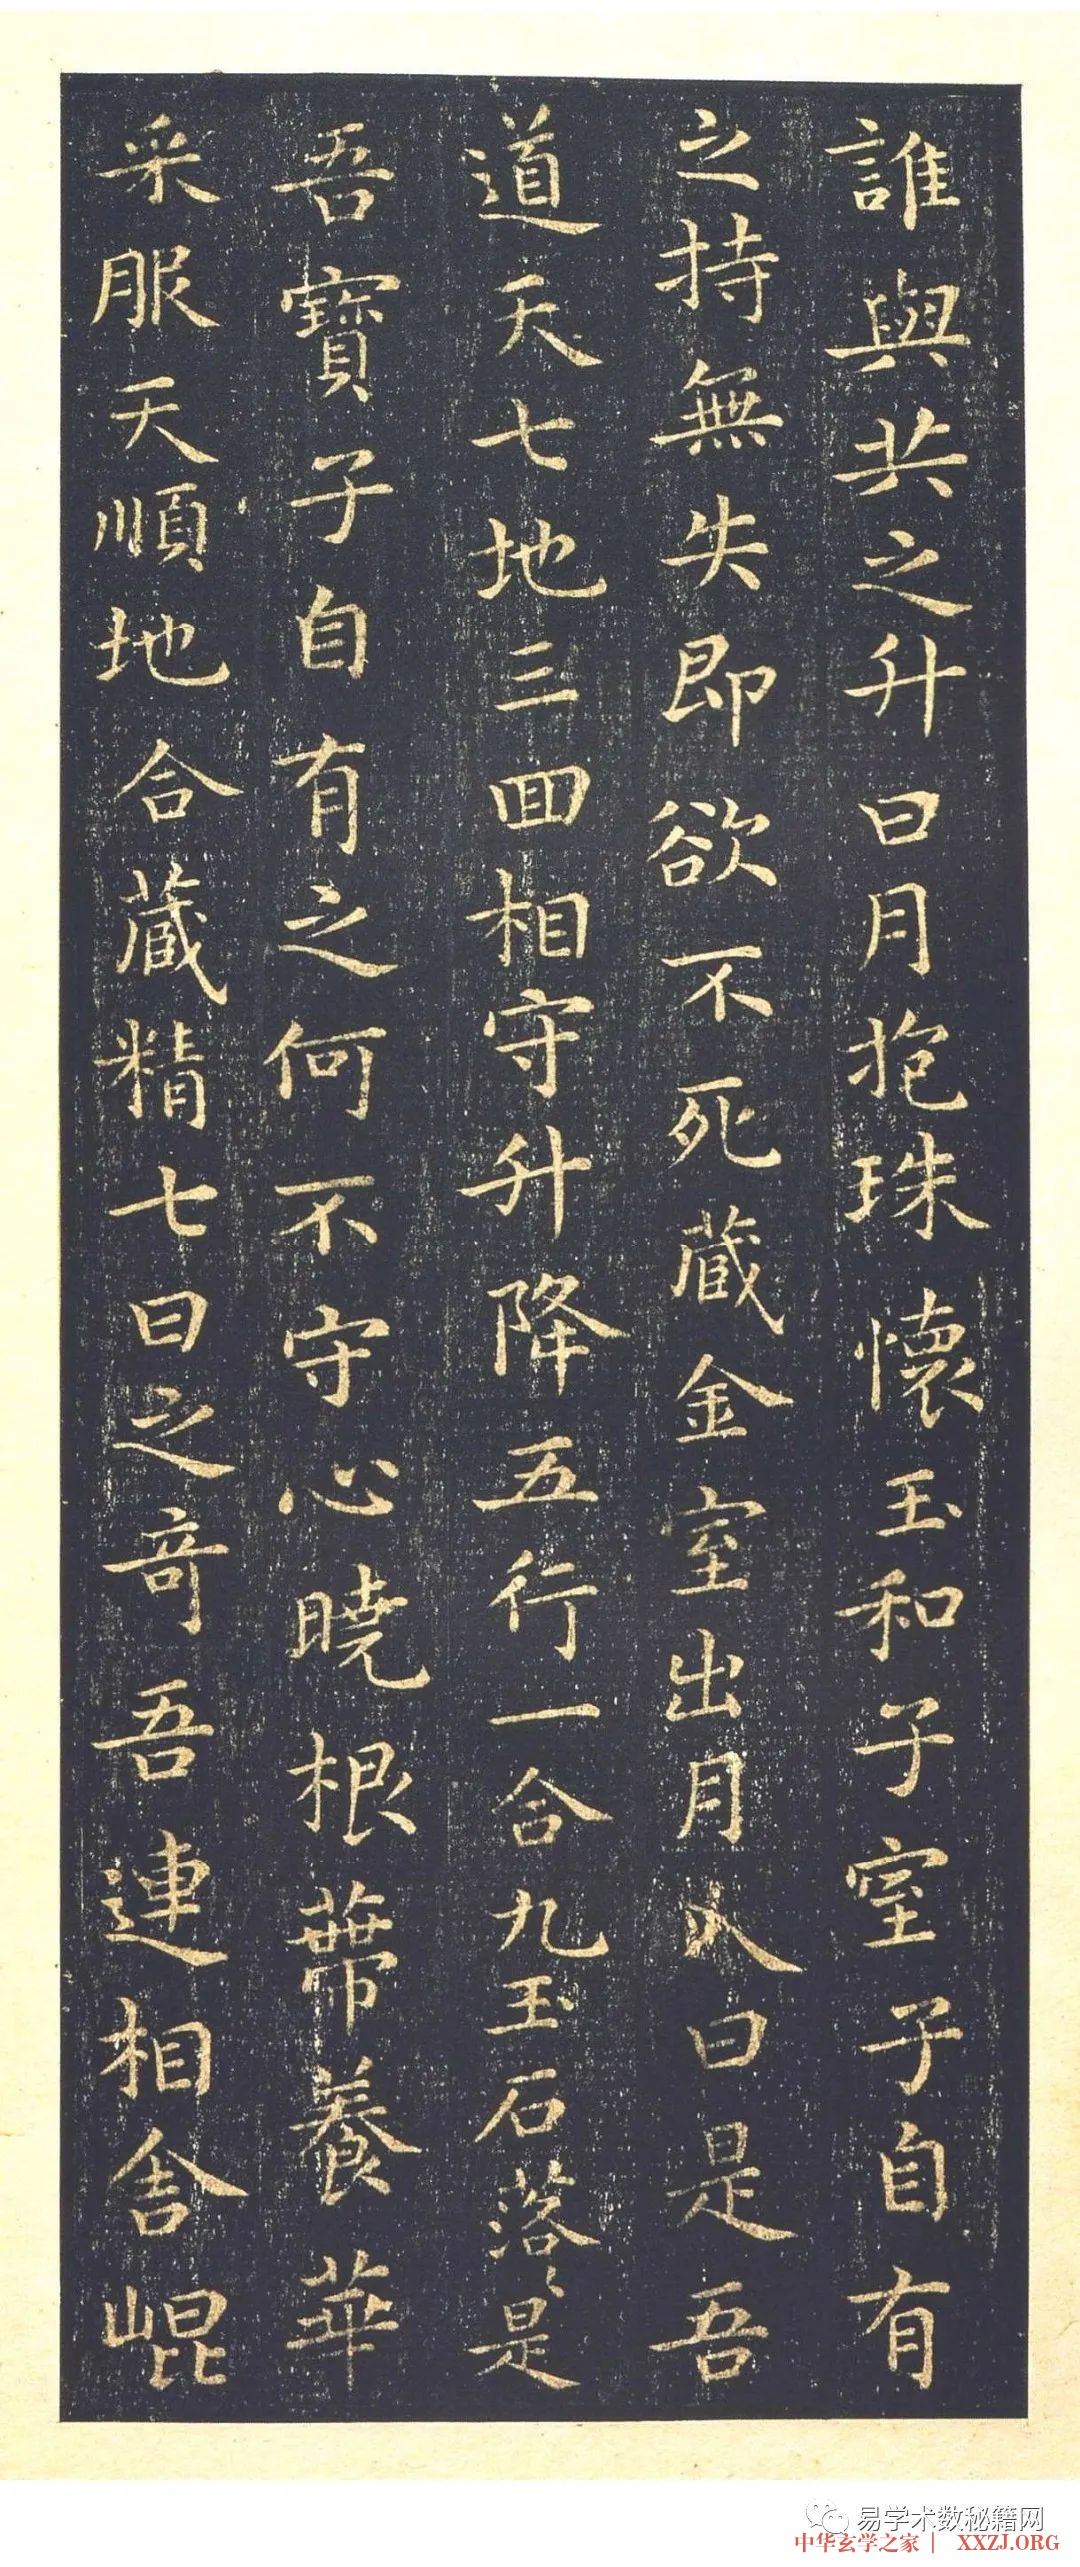 誰與共之升日月抱珠懷玉和子室子自有
之持無失即欲不死藏金室出月入日是吾
道天七地三回相守升降五行一合九玉石落〻是
吾寶子自有之何不守心曉根蔕養華
采服天順地合藏精七日之奇吾連相舍崐
易学术数秘籍网
中华玄学之家 | XXZJ.ORG